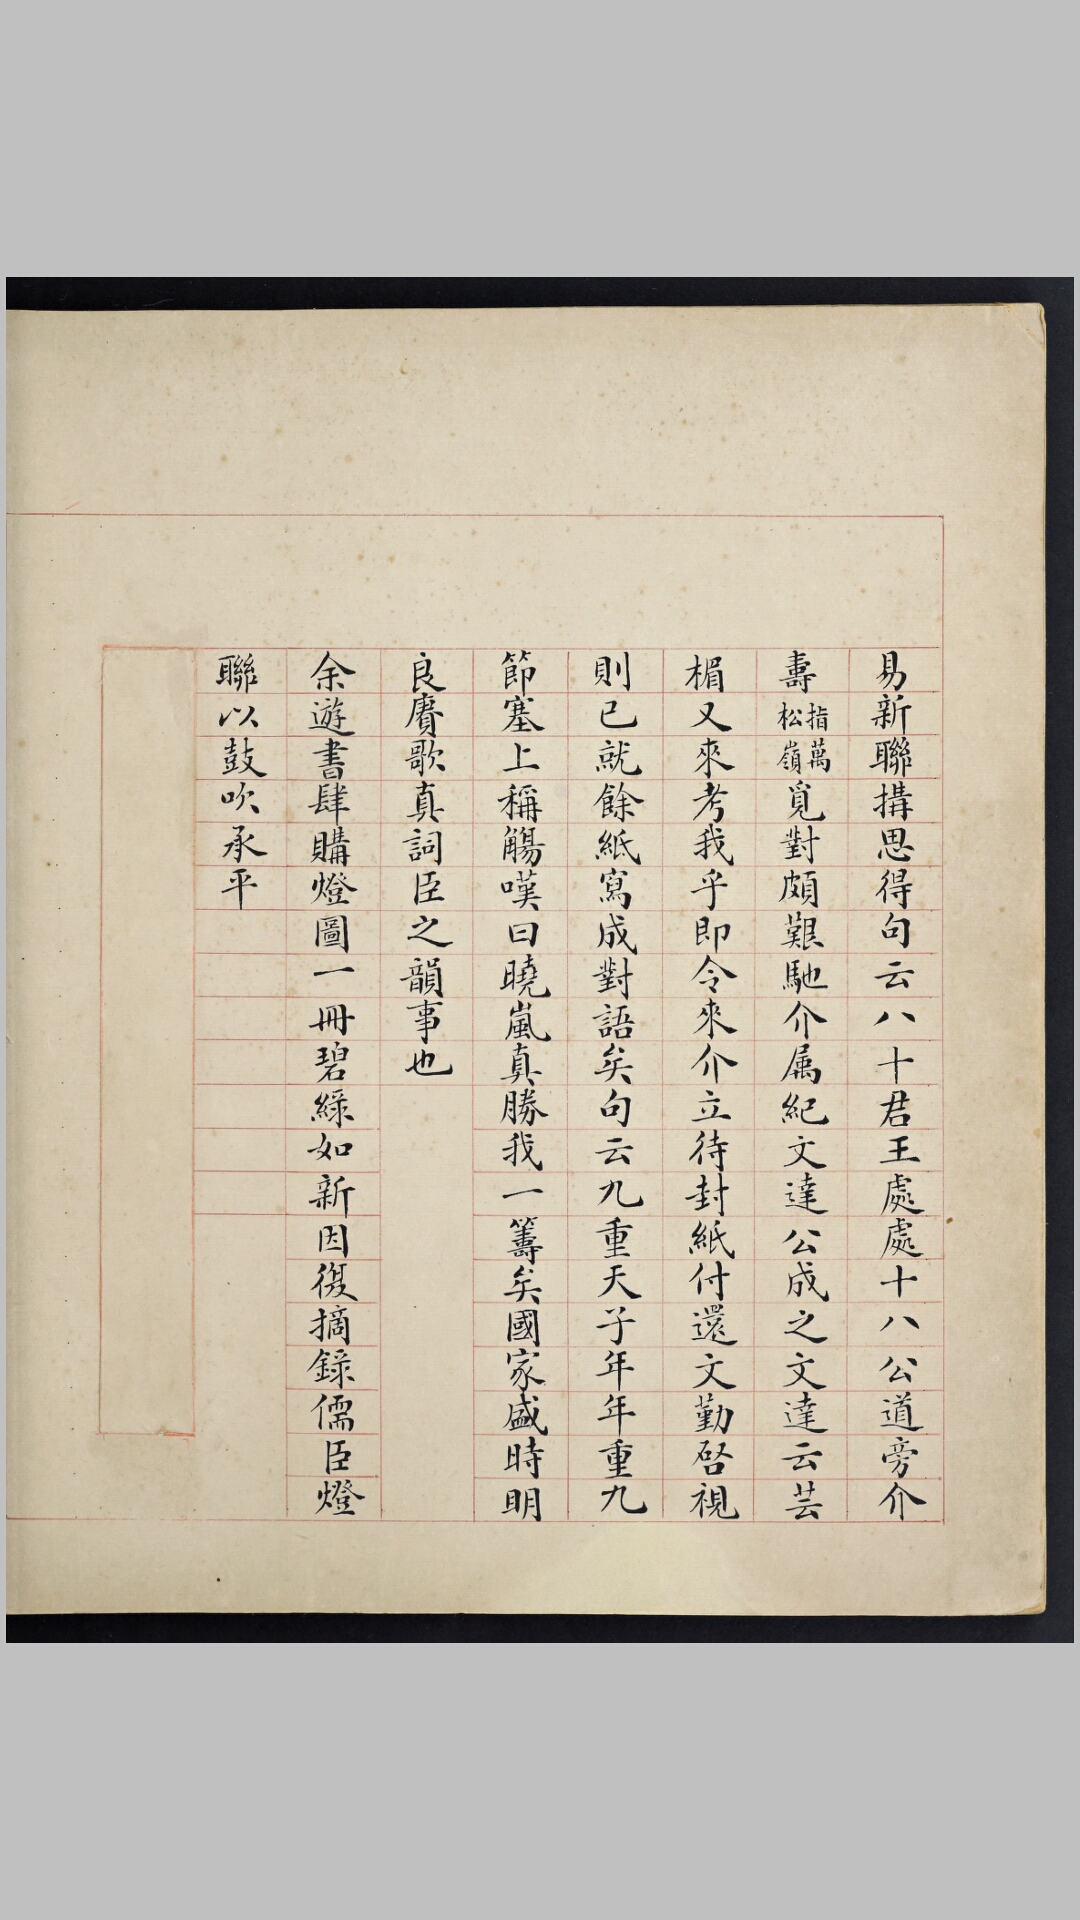 易新聯搆思得句云八十君王處處十八公道旁介
壽指萬松嶺覓對頗艱馳介属紀文達公成之文達云芸
楣又來考我乎即令來介立待封紙付還文勤啓視
則已就餘紙寫成對語矣句云九重天子年年重九
節塞上稱觴嘆曰曉嵐真勝我一籌矣國家盛時明
良賡歌真詞臣之韻事也
余遊書肆購燈圖一冊碧綠如新因復摘錄儒臣燈
聯以鼓吹承平